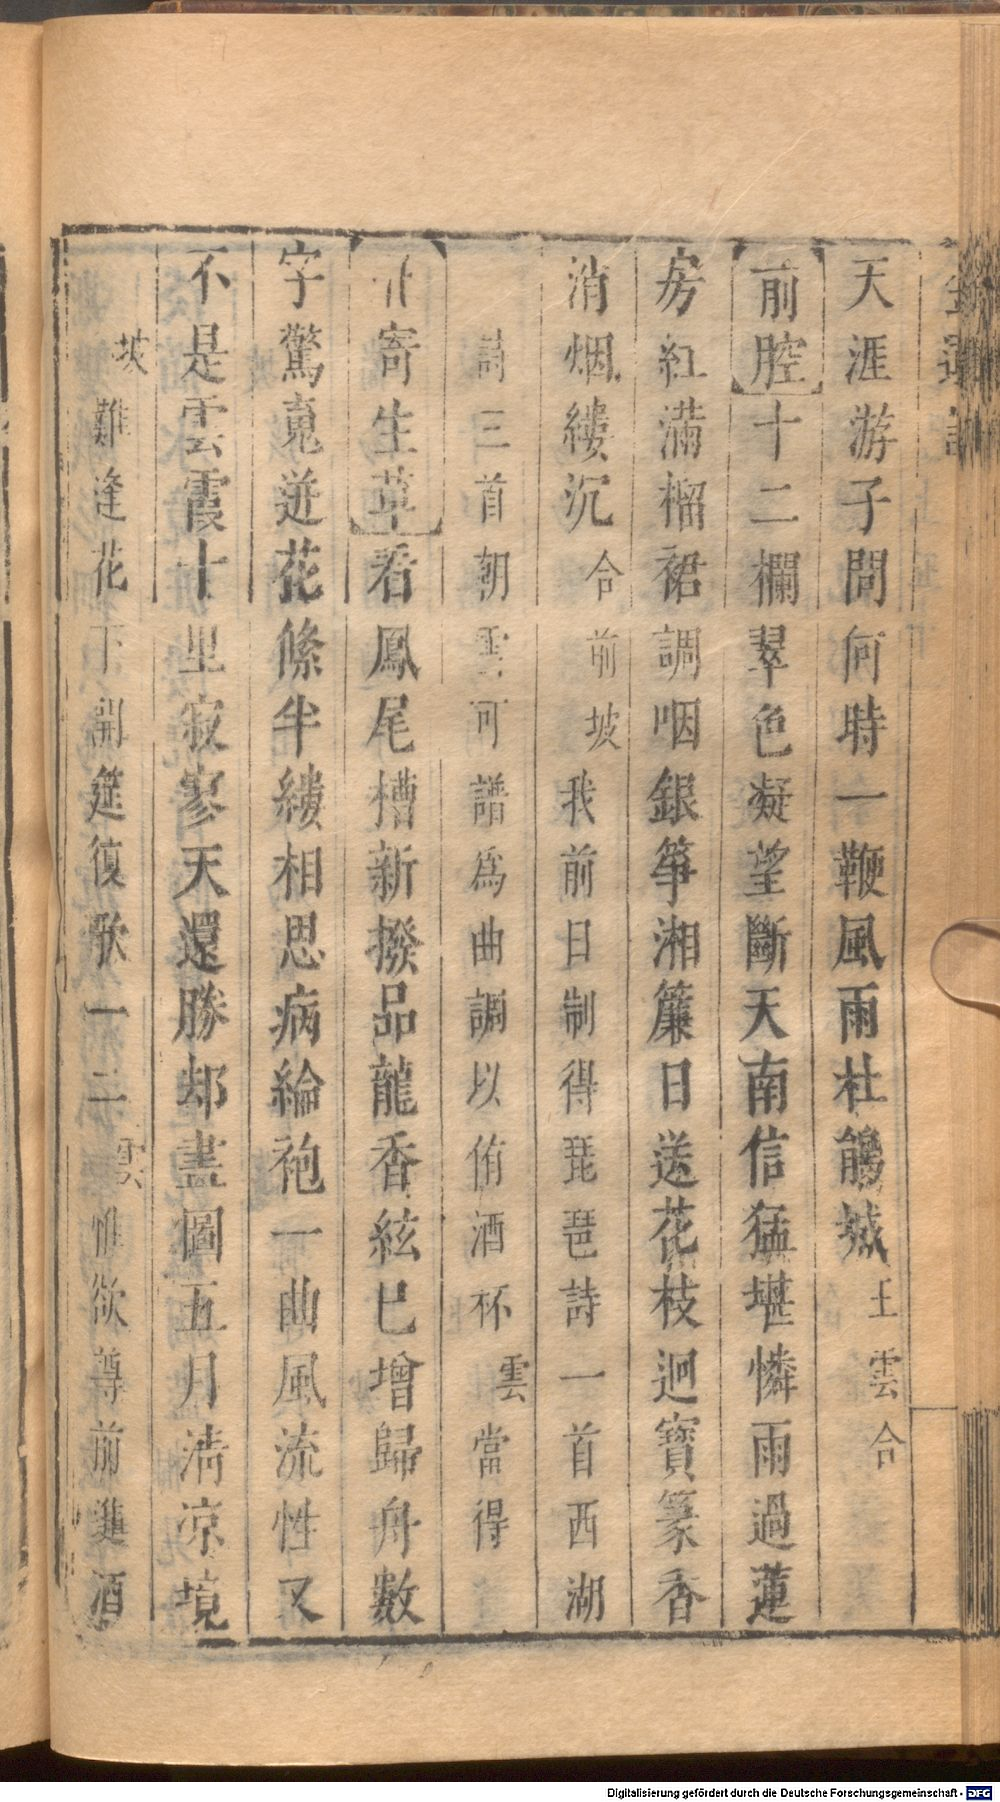 天涯游子問何時一鞭風雨杜鵑城 王雲合
前腔十二欄翠色凝望斷天南信猛堪憐雨過蓮
房紅滿榴裙調咽銀箏湘簾日送花枝迥寶篆香
消烟縷沉 合前 坡 我前日制得琵琶詩一首西湖
詩三首朝雲可譜為曲調以侑酒杯 雲 當得
寄生草看鳳尾槽新撥品龍香絃巳增歸舟數
字驚䰟迸花絛半縷相思病綸袍一曲風流性又
不是雲霞十里寂寥天還勝却畫圖五月淸凉境
坡 難逢花下開筵復歌一二 雲 惟欲尊前進酒
Digitalisierung gefördert durch die Deutsche Forschungsgemeinschaft - DFG